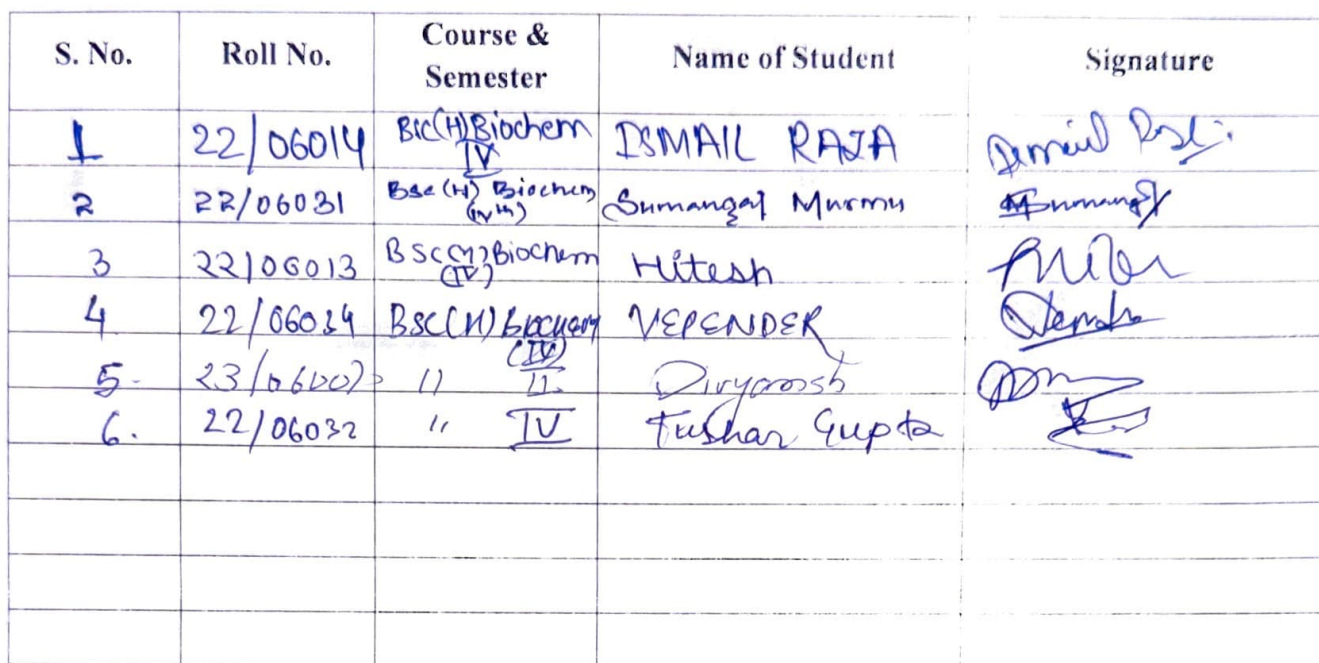 S. No. Roll No. Course & Semester Name of Student Signature
1 22/06014 BSc(H) Biochem IV ISMAIL RAJA
2 22/06031 BSc (H) Biochem (IVth) Sumangal Murmu
3 22/06013 BSc(H) Biochem (IV) Hitesh
4 22/06034 BSc(H) Biochem (IV) VEPENDER
5. 23/ " II Divyansh
6. 22/06032 " IV Tushar Gupta